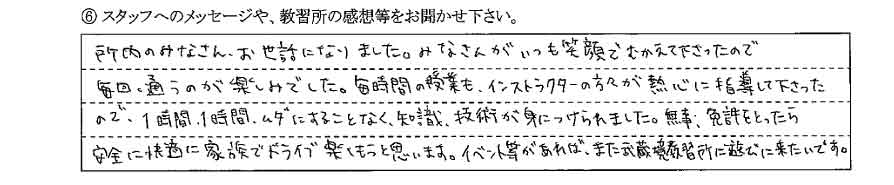 ⑥ スタッフへのメッセージや、教習所の感想等をお聞かせ下さい。
所内のみなさん、お世話になりました。みなさんがいつも笑顔でむかえて下さったので
毎回、通うのが楽しみでした。毎時間の授業も、インストラクターの方々が熱心に指導して下さった
ので、1時間、1時間、ムダにすることなく、知識、技術が身につけられました。無事、免許をとったら
安全に快適に家族でドライブ楽しもうと思います。イベント等があれば、また武蔵境教習所に遊びに来たいです。